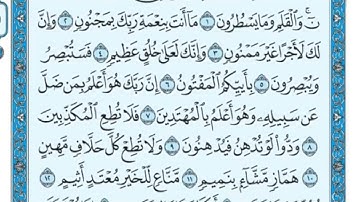 نٓۚ وَٱلْقَلَمِ وَمَا يَسْطُرُونَ ١ مَآ أَنتَ بِنِعْمَةِ رَبِّكَ بِمَجْنُونٍ ٢ وَإِنَّ
لَكَ لَأَجْرًا غَيْرَ مَمْنُونٍ ٣ وَإِنَّكَ لَعَلَىٰ خُلُقٍ عَظِيمٍ ٤ فَسَتُبْصِرُ
وَيُبْصِرُونَ ٥ بِأَييِّكُمُ ٱلْمَفْتُونُ ٦ إِنَّ رَبَّكَ هُوَ أَعْلَمُ بِمَن ضَلَّ
عَن سَبِيلِهِۦ وَهُوَ أَعْلَمُ بِٱلْمُهْتَدِينَ ٧ فَلَا تُطِعِ ٱلْمُكَذِّبِينَ
٨ وَدُّوا۟ لَوْ تُدْهِنُ فَيُدْهِنُونَ ٩ وَلَا تُطِعْ كُلَّ حَلَّافٍ مَّهِينٍ
١٠ هَمَّازٍ مَّشَّآءٍۭ بِنَمِيمٍ ١١ مَّنَّاعٍ لِّلْخَيْرِ مُعْتَدٍ أَثِيمٍ ١٢